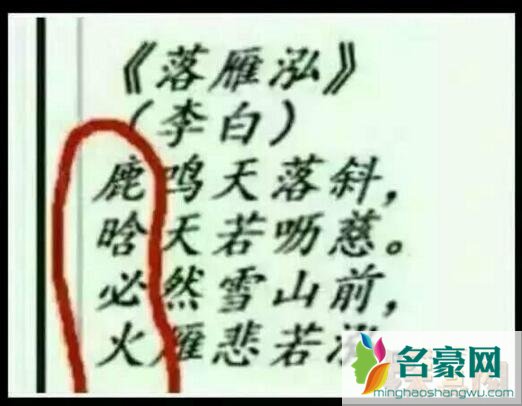 《落雁泓》
(李白)
鹿鸣天落斜，
晗天若呖慈。
必然雪山前，
火雁悲若
名豪网
minghaoshangwu.com